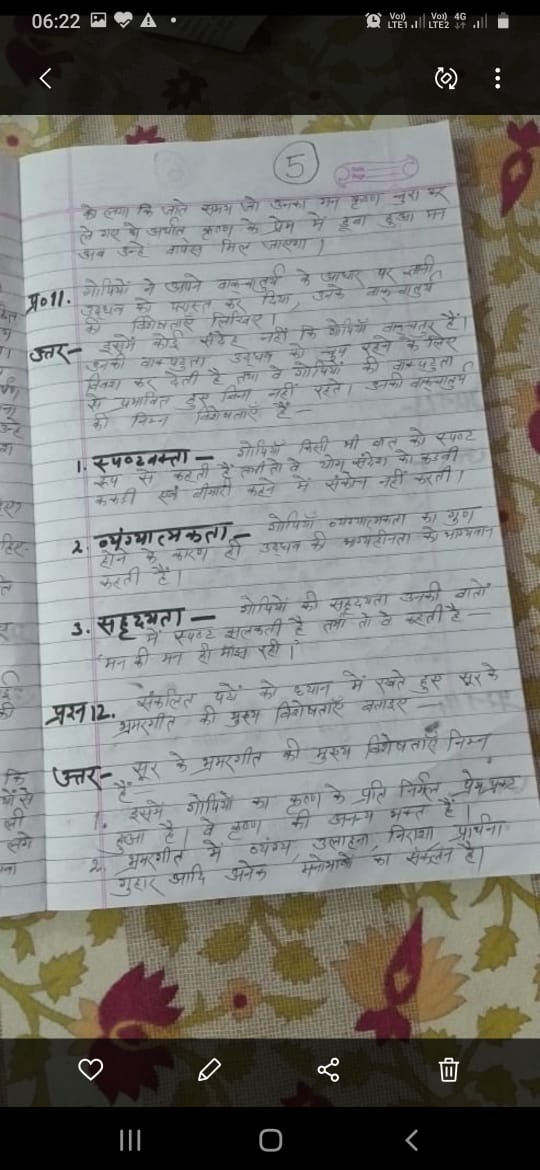 06:22
Vo)) LTE1 Vo)) LTE2 4G
5
को लगा कि जाते समय जो उनका मन कृष्ण चुरा कर
ले गए थे अर्थात कृष्ण के प्रेम में डूबा हुआ मन
अब उन्हें वापस मिल जाएगा।
प्र०11. गोपियों ने अपने वाकचातुर्य के आधार पर ज्ञानी
उद्धव को परास्त कर दिया, उनके वाकचातुर्य
की विशेषताएँ लिखिए।
उत्तर- इसमें कोई संदेह नहीं कि गोपियाँ वाकचतुर हैं।
उनकी वाकपटुता उद्धव को चुप रहने के लिए
विवश कर देती है तथा वे गोपियों की वाकपटुता
से प्रभावित हुए बिना नहीं रहते। उनकी वाकचातुर्य
की निम्न विशेषताएँ हैं —
1. स्पष्टवक्ता — गोपियाँ किसी भी बात को स्पष्ट
रूप से कहती हैं तभी तो वे योग संदेश को कड़वी
ककड़ी एवं बीमारी कहने में संकोच नहीं करती।
2. व्यंग्यात्मकता — गोपियाँ व्यंग्यात्मकता का गुण
होने के कारण ही उद्धव की भाग्यहीनता को भाग्यवान
कहती हैं।
3. सहृदयता — गोपियों की सहृदयता उनकी बातों
में स्पष्ट झलकती है तभी तो वे कहती है —
'मन की मन ही माँझ रही।'
प्रश्न 12. संकलित पदों को ध्यान में रखते हुए सूर के
भ्रमरगीत की मुख्य विशेषताएँ बताइए —
उत्तर- सूर के भ्रमरगीत की मुख्य विशेषताएँ निम्न
हैं —
1. इसमें गोपियों का कृष्ण के प्रति निर्मल प्रेम प्रकट
हुआ है। वे कृष्ण की अनन्य भक्त हैं।
2. भ्रमरगीत में व्यंग्य, उलाहना, निराशा, प्रार्थना
गुहार आदि अनेक मनोभावों का संकलन है।